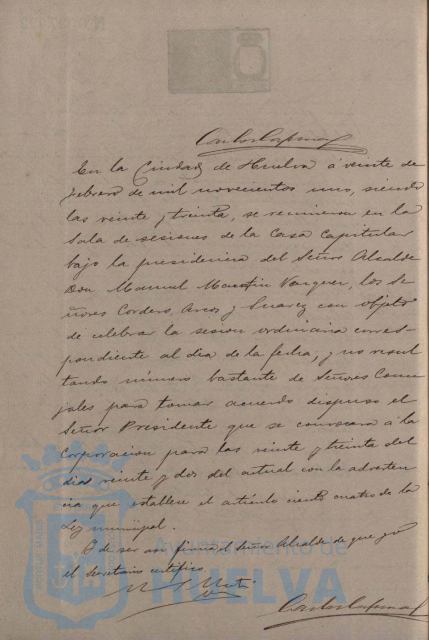 En la Ciudad de Huelva á veinte de
Febrero de mil novecientos uno, siendo
las veinte y treinta, se reunieron en la
Sala de sesiones de la Casa Capitular
bajo la presidencia del Señor Alcalde
Don Manuel Martin Vazquez, los Se-
ñores Cordero, Arcos y Suarez con objeto
de celebrar la sesion ordinaria corres-
pondiente al dia de la fecha, y no resul
tando número bastante de Señores Conce
jales para tomar acuerdo dispuso el
Señor Presidente que se convocara á la
Corporacion para las veinte y treinta del
dia veinte y dos del actual con la adverten
cia que establece el artículo ciento cuatro de la
Ley municipal.
O de ser así firma el Señor Alcalde de que yo
el Secretario certifico.
Ayuntamiento de
HUELVA